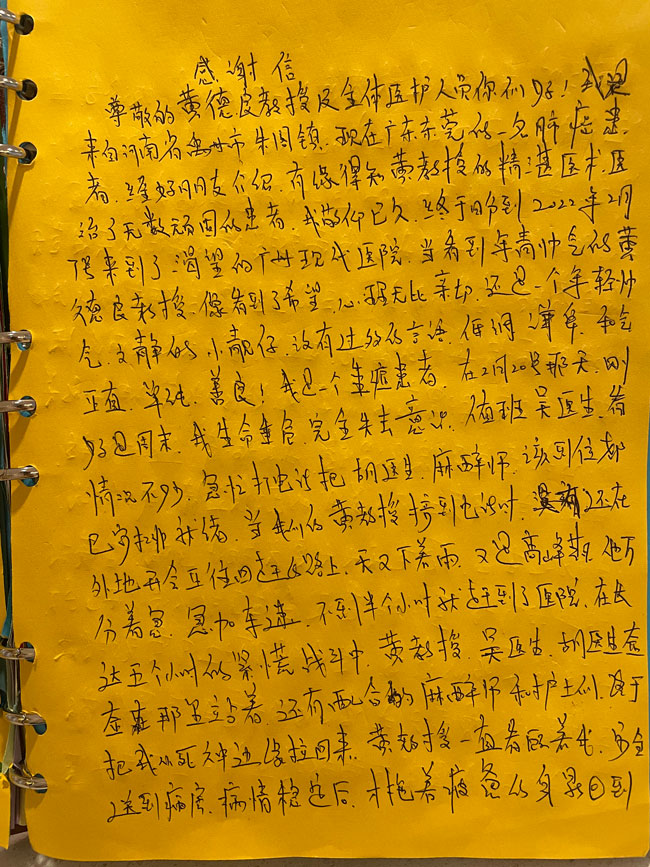 感谢信
尊敬的黄德良教授及全体医护人员你们好！我是
来自河南省禹州市朱阁镇、现在广东东莞的一名肺癌患
者、经好朋友介绍、有缘得知黄教授的精湛医术、医
治了无数顽固的患者、我敬仰已久、终于盼到2022年2月
来到了渴望的广州现代医院、当看到年青帅气的黄
德良教授、像看到了希望、心理无比亲切、还是一个年轻帅
气、文静的小靓仔、没有过多的言语、低调、和气
正直、单纯、善良！我是一个重症患者、在2月20号那天、刚
好是周末、我生命垂危、完全失去意识、值班吴医生、看
情况不妙、急忙打电话把胡医生、麻醉师、该到位都
已安排就绪、当我们的黄教授接到电话时、还在
外地开会正往回赶的路上、天又下着雨、又是高峰期、他万
分着急、急加车速、不到半个小时就赶到了医院、在长
达五个小时的紧慌战斗中、黄教授、吴医生、胡医生
在那里站着、还有配合的麻醉师和护士们、终于
把我从死神边缘拉回来、黄教授一直看着我、安全
送到病房、病情稳定后、才抱着疲惫的身影回到